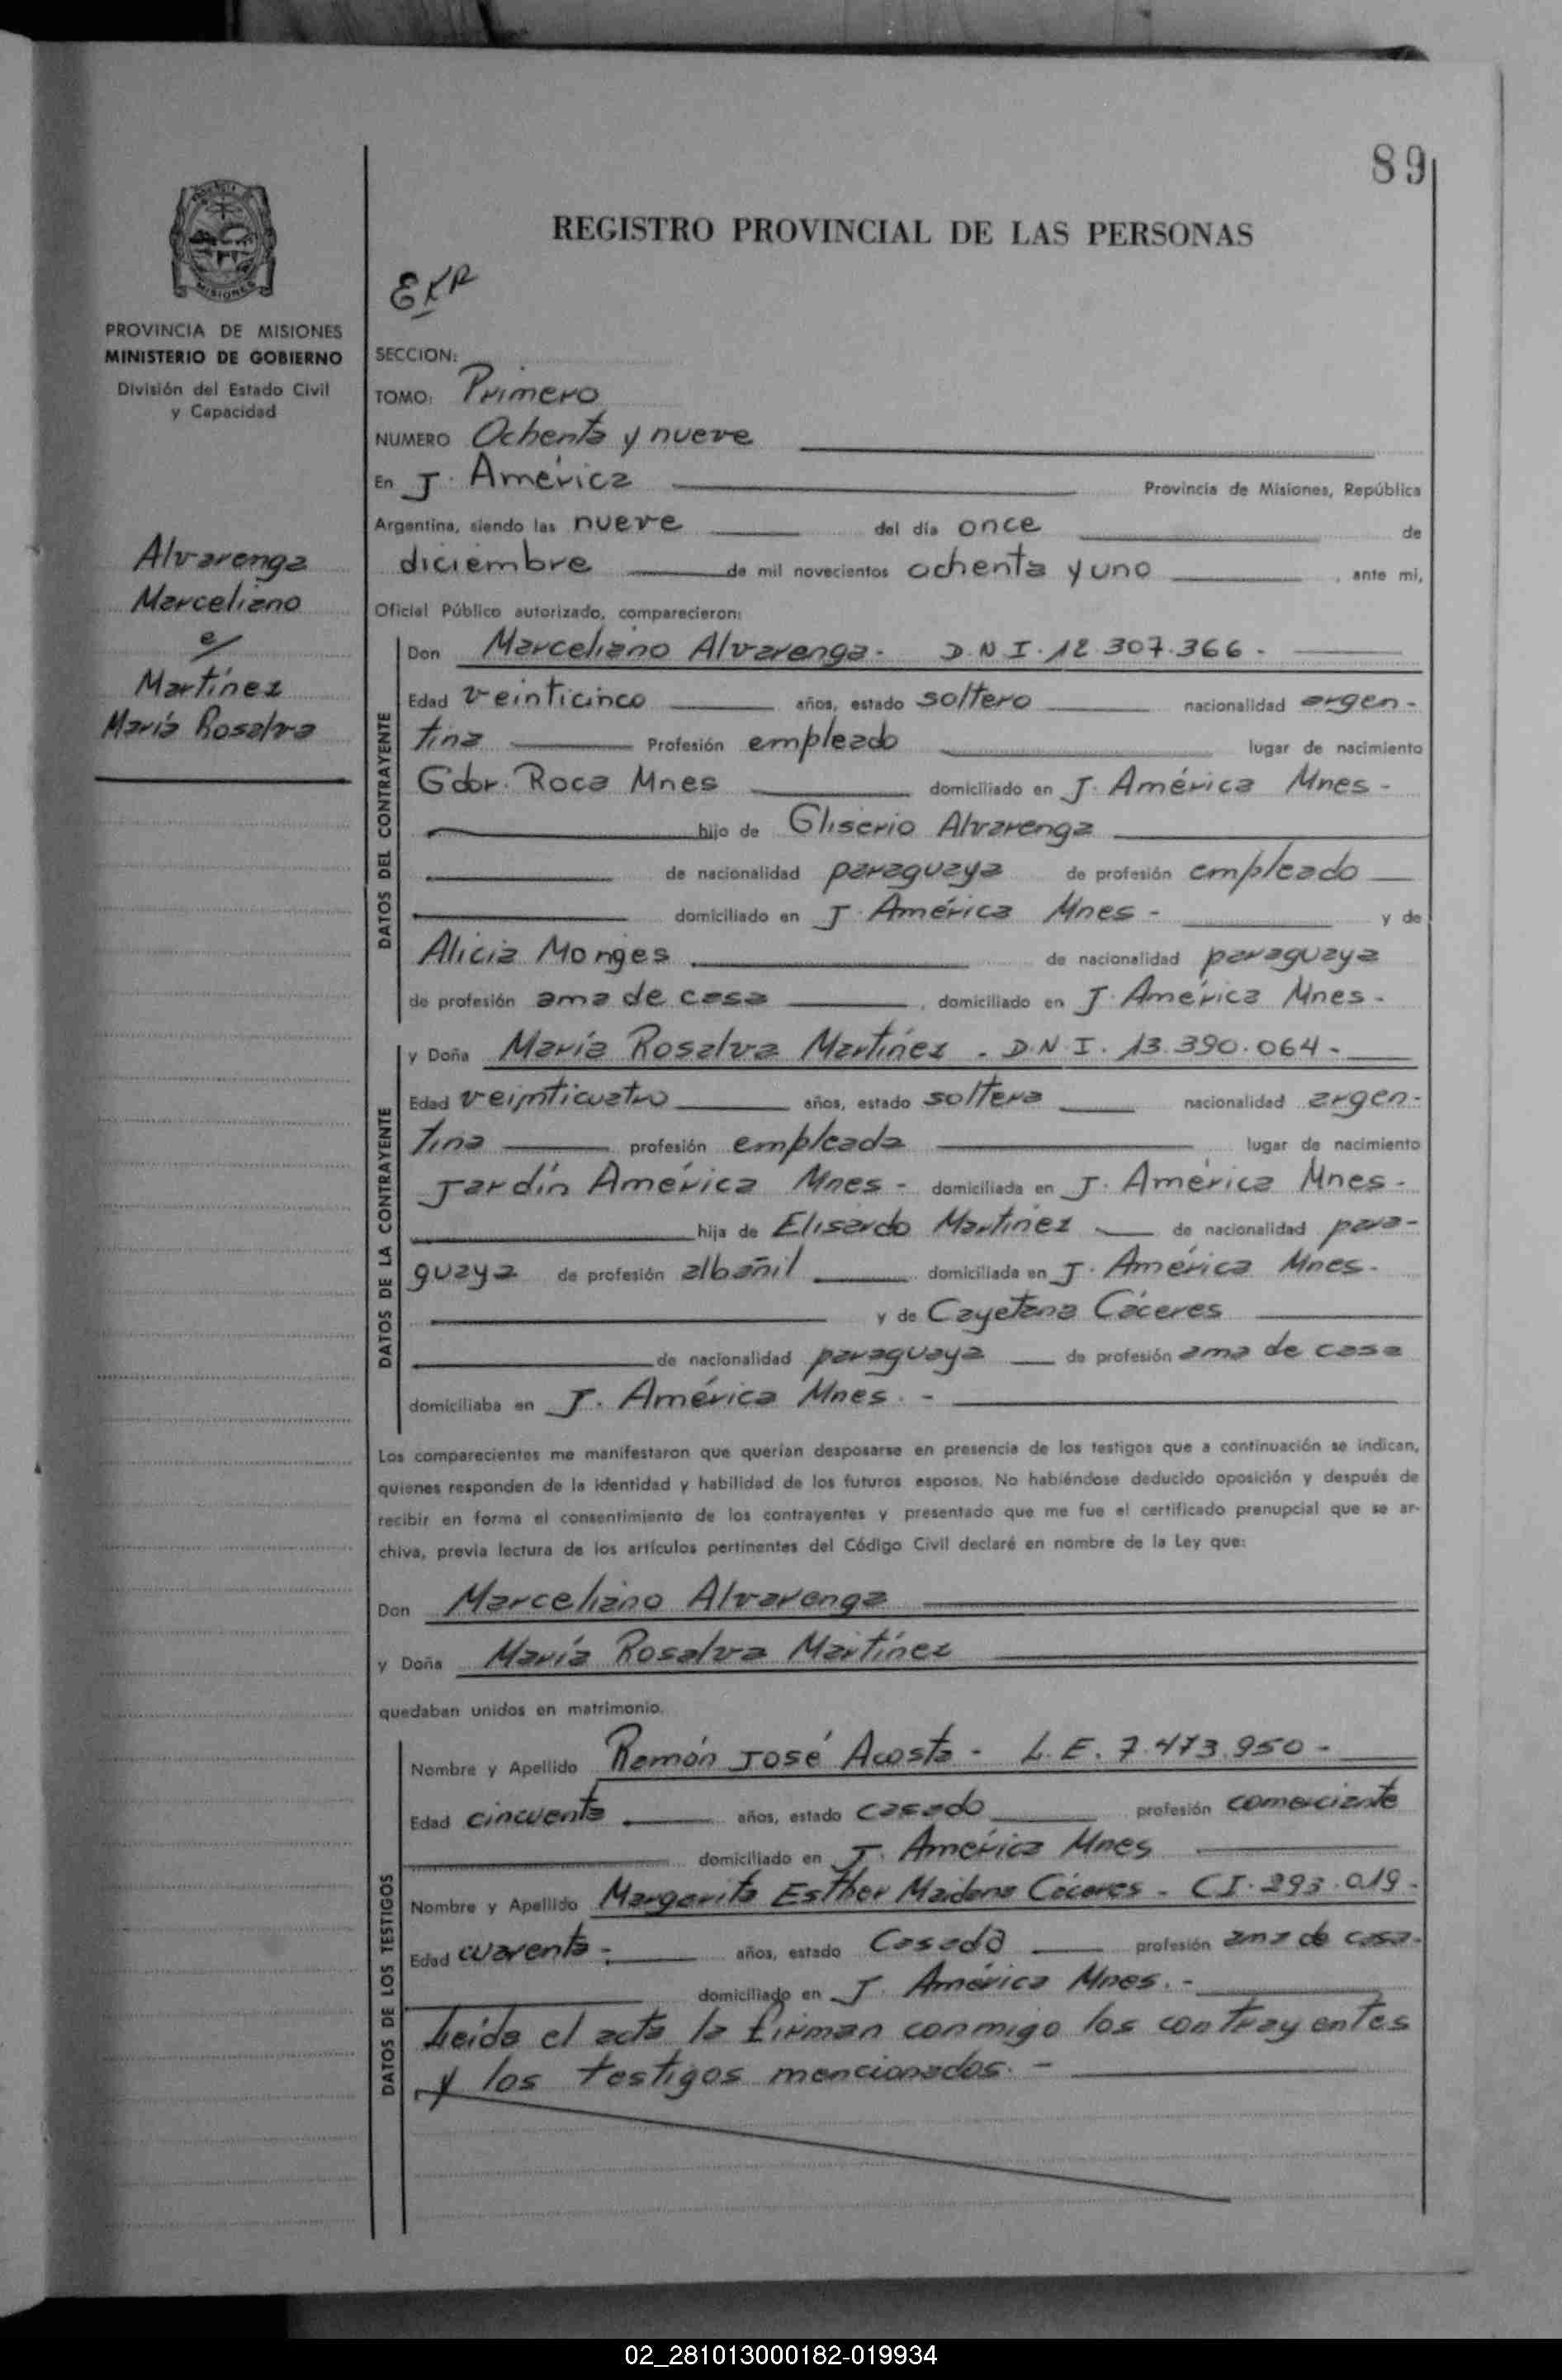 89
REGISTRO PROVINCIAL DE LAS PERSONAS
MISIONES
PROVINCIA DE MISIONES
MINISTERIO DE GOBIERNO
División del Estado Civil
y Capacidad
Alvarenga
Marceliano
c/
Martínez
María Rosalva
SECCION:
TOMO: Primero
NUMERO Ochenta y nueve
En J. América Provincia de Misiones, República
Argentina, siendo las nueve del día once de
diciembre de mil novecientos ochenta y uno, ante mi,
Oficial Público autorizado, comparecieron:
DATOS DEL CONTRAYENTE
Don Marceliano Alvarenga - D.N.I. 12.307.366 -
Edad veinticinco años, estado soltero nacionalidad argen-
tina Profesión empleado lugar de nacimiento
Gdor. Roca Mnes domiciliado en J. América Mnes -
hijo de Gliserio Alvarenga
de nacionalidad paraguaya de profesión empleado
domiciliado en J. América Mnes - y de
Alicia Monges de nacionalidad paraguaya
de profesión ama de casa, domiciliado en J. América Mnes -
DATOS DE LA CONTRAYENTE
y Doña María Rosalva Martínez - D.N.I. 13.390.064 -
Edad veinticuatro años, estado soltera nacionalidad argen-
tina profesión empleada lugar de nacimiento
Jardín América Mnes - domiciliada en J. América Mnes -
hija de Elisardo Martínez de nacionalidad para-
guaya de profesión albañil domiciliada en J. América Mnes -
y de Cayetana Cáceres
de nacionalidad paraguaya de profesión ama de casa
domiciliaba en J. América Mnes. -
Los comparecientes me manifestaron que querían desposarse en presencia de los testigos que a continuación se indican,
quienes responden de la identidad y habilidad de los futuros esposos. No habiéndose deducido oposición y después de
recibir en forma el consentimiento de los contrayentes y presentado que me fue el certificado prenupcial que se ar-
chiva, previa lectura de los artículos pertinentes del Código Civil declaré en nombre de la Ley que:
Don Marceliano Alvarenga
y Doña María Rosalva Martínez
quedaban unidos en matrimonio.
DATOS DE LOS TESTIGOS
Nombre y Apellido Ramón José Acosta - L.E. 7.473.950 -
Edad cincuenta años, estado casado profesión comerciante
domiciliado en J. América Mnes
Nombre y Apellido Margarita Esther Maidana Cáceres - C.I. 293.019 -
Edad cuarenta - años, estado Casada profesión ama de casa -
domiciliado en J. América Mnes. -
Leída el acta la firman conmigo los contrayentes
y los testigos mencionados. -
02_281013000182-019934